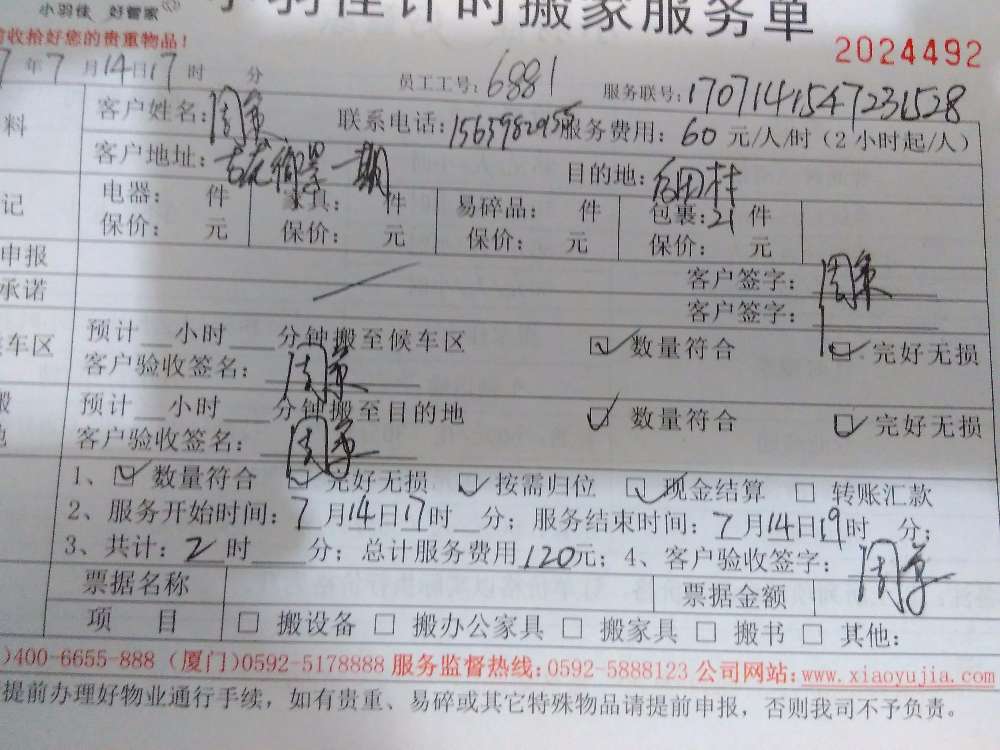 小羽佳 好管家
小羽佳计时搬家服务单
前收拾好您的贵重物品!
2024492
7年7月14日17时 分 员工工号:6881 服务联号:1707141547231528
料 客户姓名: 联系电话: 服务费用:60元/人/时(2小时起/人)
客户地址: 一期 目的地:
记 电器: 件 家具: 件 易碎品: 件 包裹:21件
保价: 元 保价: 元 保价: 元 保价: 元
申报 客户签字:
承诺 客户签字:
车区 预计__小时____分钟搬至候车区 ☑数量符合 ☑完好无损
客户验收签名:
搬 预计__小时____分钟搬至目的地 ☑数量符合 ☑完好无损
地 客户验收签名:
1、☑数量符合 ☑完好无损 ☑按需归位 ☑现金结算 □转账汇款
2、服务开始时间:7月14日17时__分;服务结束时间:7月14日19时 分;
3、共计:2时____分;总计服务费用120元;4、客户验收签字:
票据名称 票据金额
项 目 □搬设备 □搬办公家具 □搬家具 □搬书 □其他:
)400-6655-888 (厦门)0592-5178888 服务监督热线:0592-5888123 公司网站:www.xiaoyujia.com
提前办理好物业通行手续,如有贵重、易碎或其它特殊物品请提前申报,否则我司不予负责。